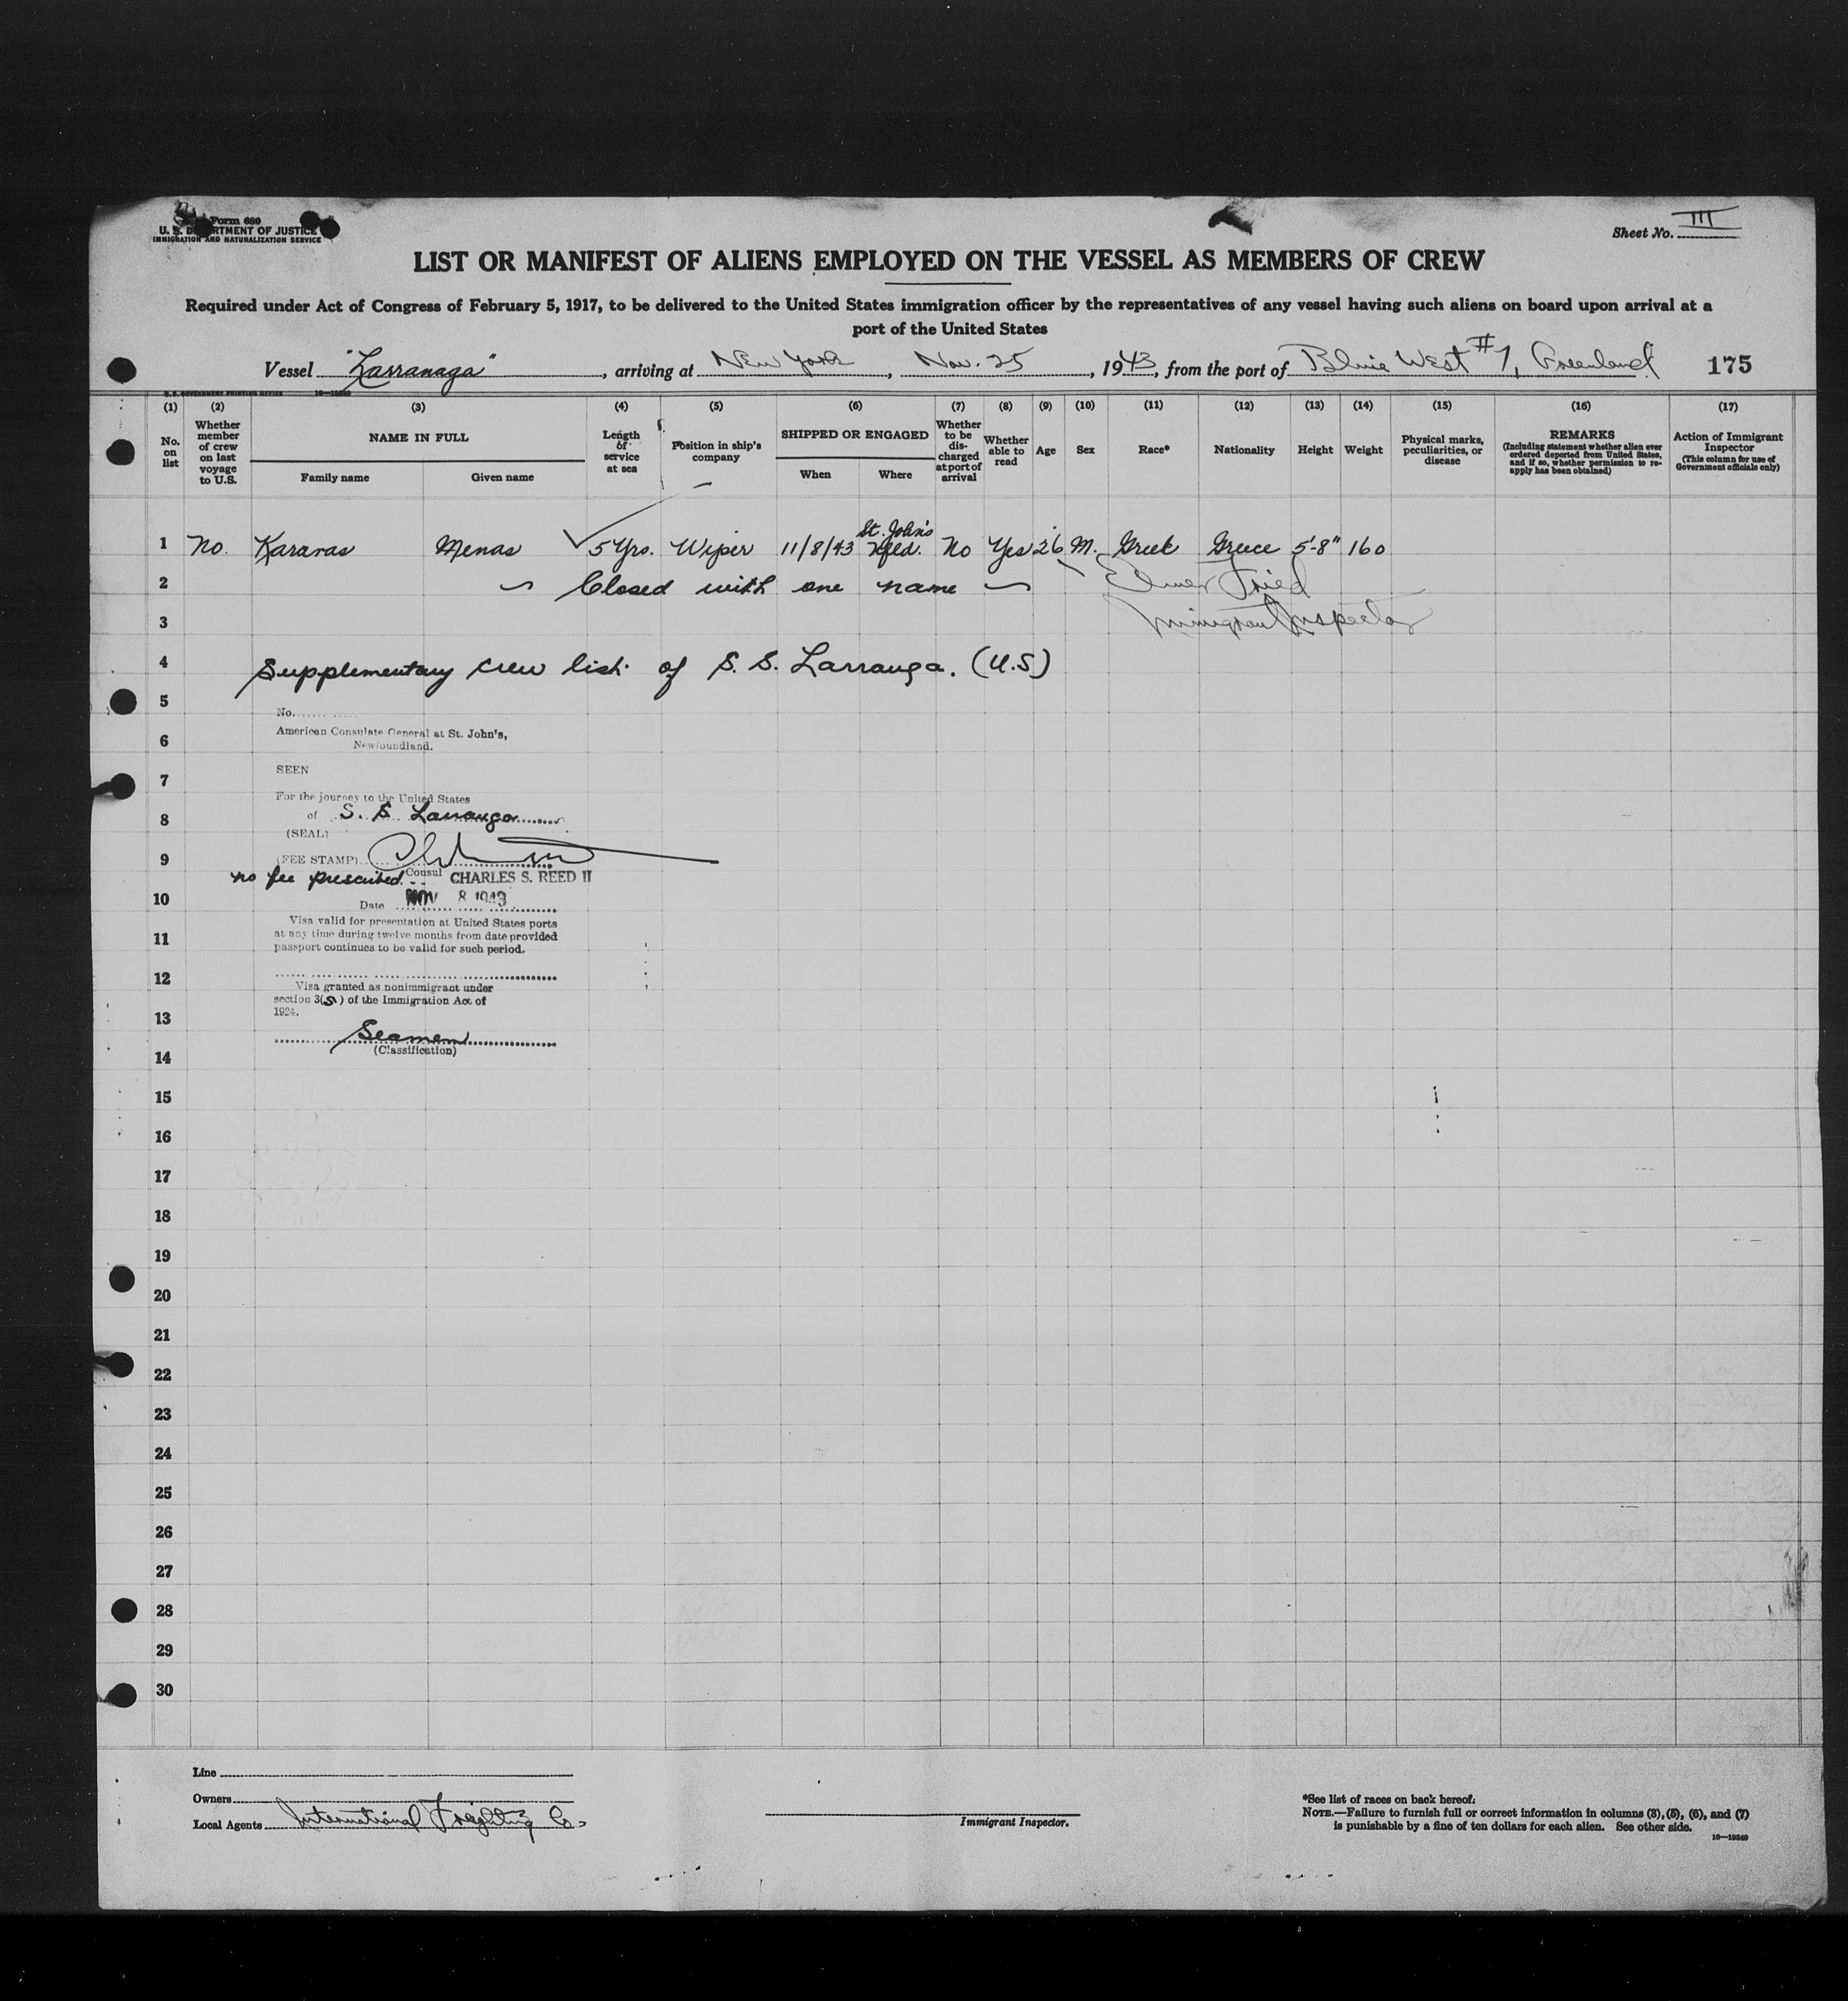 Form 680
U. S. DEPARTMENT OF JUSTICE
IMMIGRATION AND NATURALIZATION SERVICE
Sheet No. III
LIST OR MANIFEST OF ALIENS EMPLOYED ON THE VESSEL AS MEMBERS OF CREW
Required under Act of Congress of February 5, 1917, to be delivered to the United States immigration officer by the representatives of any vessel having such aliens on board upon arrival at a
port of the United States
Vessel "Larranaga", arriving at New York, Nov. 25, 1943, from the port of Bluie West #7, Greenland 175
U. S. GOVERNMENT PRINTING OFFICE 16—19349
(1) (2) (3) (4) (5) (6) (7) (8) (9) (10) (11) (12) (13) (14) (15) (16) (17)
No. on list
Whether member of crew on last voyage to U.S.
NAME IN FULL
Family name Given name
Length of service at sea
Position in ship's company
SHIPPED OR ENGAGED
When Where
Whether to be discharged at port of arrival
Whether able to read
Age
Sex
Race*
Nationality
Height
Weight
Physical marks, peculiarities, or disease
REMARKS
(Including statement whether alien ever ordered deported from United States, and if so, whether permission to re-apply has been obtained)
Action of Immigrant Inspector
(This column for use of Government officials only)
1 No. Karavas Menas 5 Yrs. Wiper 11/8/43 St. John's Nfld. No Yes 26 M. Greek Greece 5'-8" 160
2 Closed with one name Elmer Fried
3 Immigrant Inspector
4 Supplementary crew list of S. S. Larranga. (U.S)
5
No.
American Consulate General at St. John's,
6
Newfoundland.
SEEN
7
For the journey to the United States
8 of S. S. Larranga
(SEAL)
9 (FEE STAMP)
no fee prescribed. Consul CHARLES S. REED II
10 Date NOV 8 1943
Visa valid for presentation at United States ports
11 at any time during twelve months from date provided
passport continues to be valid for such period.
12
Visa granted as nonimmigrant under
section 3(5) of the Immigration Act of
1924.
13
Seamen
14 (Classification)
15
16
17
18
19
20
21
22
23
24
25
26
27
28
29
30
Line
Owners
Local Agents International Freighting Co.
Immigrant Inspector.
*See list of races on back hereof.
NOTE.—Failure to furnish full or correct information in columns (3), (5), (6), and (7)
is punishable by a fine of ten dollars for each alien. See other side.
16—19349